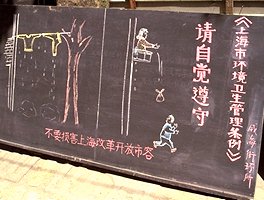 《上海市环境卫生管理条例》
请自觉遵守
不要损害上海改革开放市容